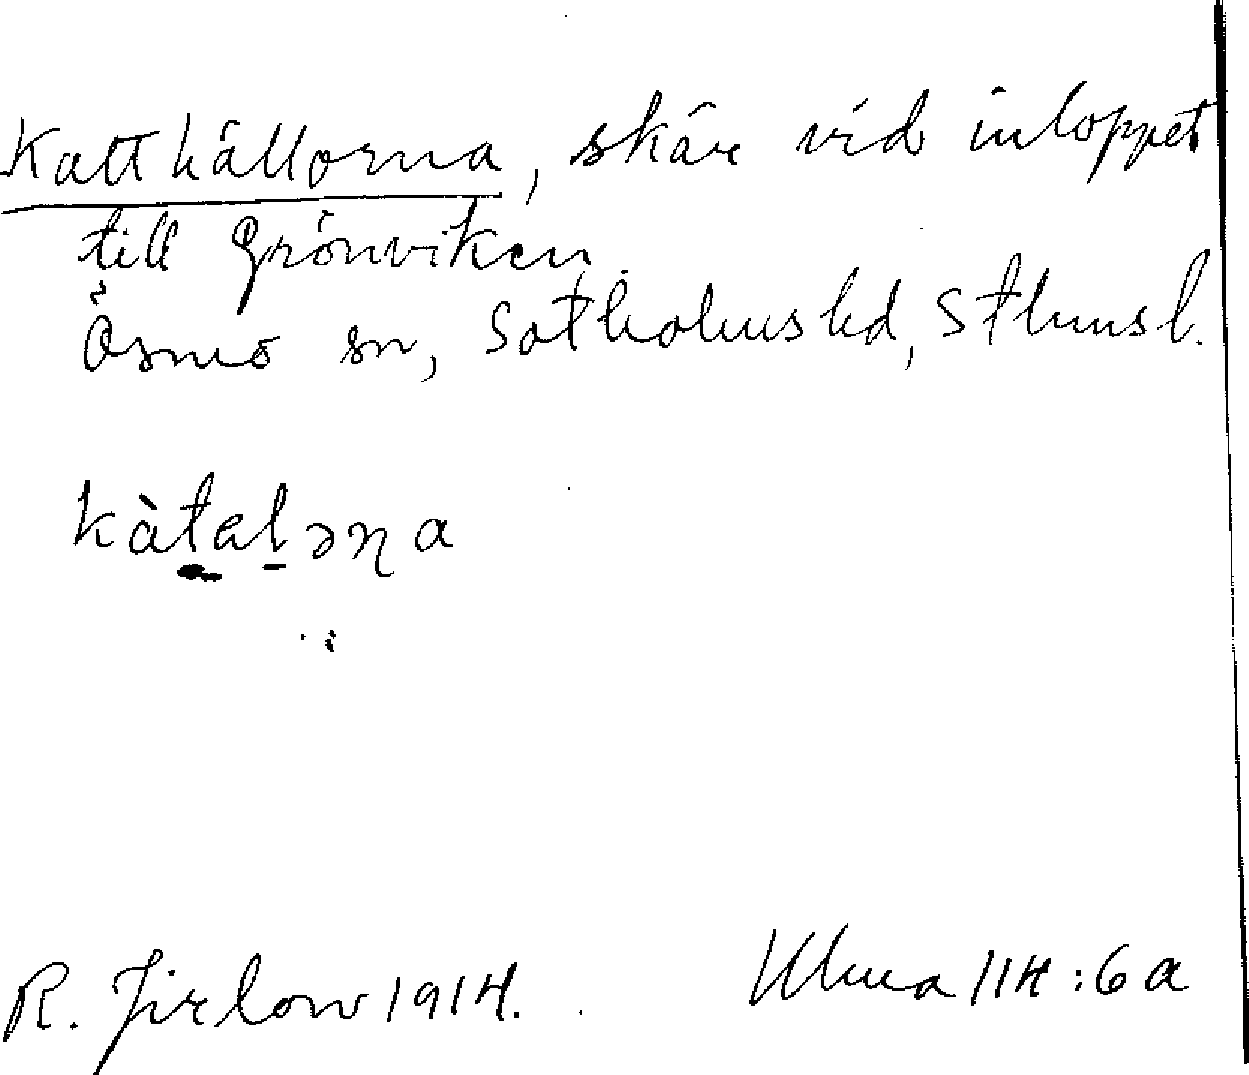 Katthällorna, skär vid inloppet
till Grönviken
Ösmo sn, Sotholms hd, Sthmsl.
kàtaḷəꞃa
R. Jirlow 1914. Ulma 114:6a